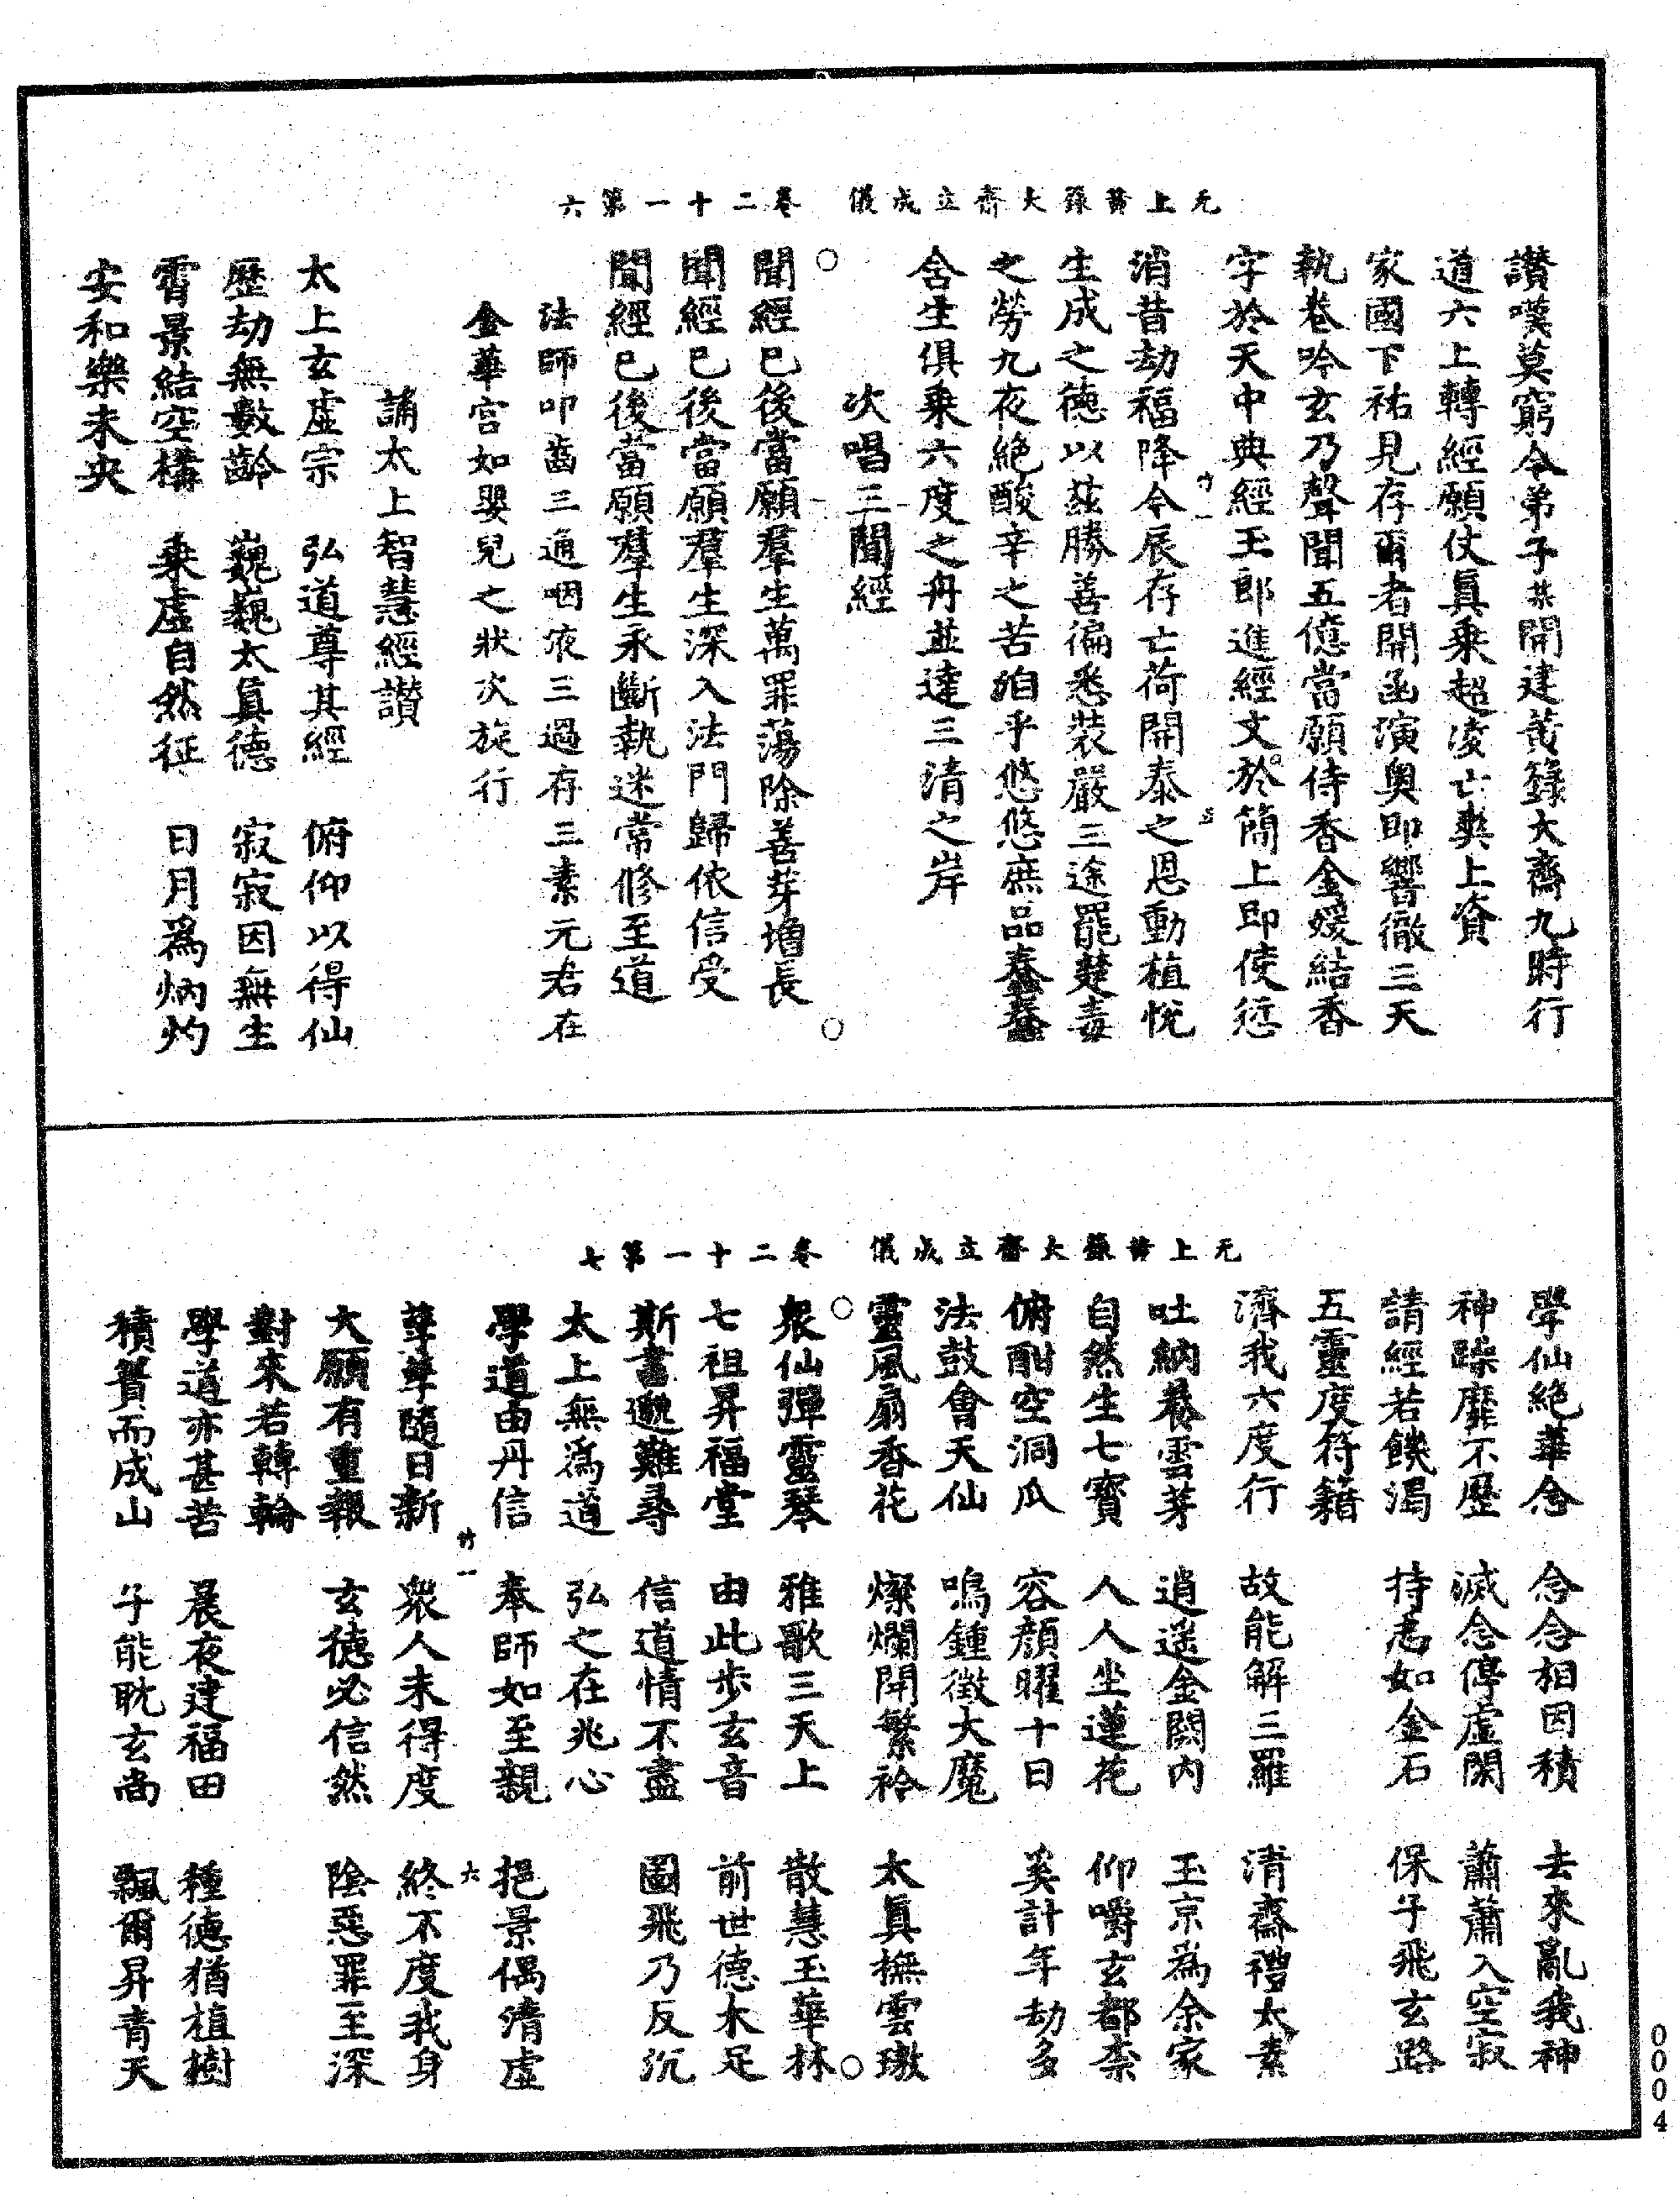 讃嘆莫窮令弟子某開建黄籙大齋九時行
道六上轉經願仗眞乗超凌亡爽上資
家國下祐見存爾者開函演奥即響徹三天
執卷吟玄乃聲聞五億當願侍香金媛結香
字於天中典經玉郎進經文於簡上即使愆
消昔劫福降今辰存亡荷開泰之恩動植悅
生成之德以兹勝善徧悉裝嚴三途罷楚毒
之勞九夜絶酸辛之苦洎乎悠悠庶品蠢蠢
含生俱乗六度之舟並達三清之岸
次唱三聞經
聞經已後當願羣生萬罪蕩除善芽增長
聞經已後當願羣生深入法門歸依信受
聞經已後當願羣生永斷執迷常修至道
法師叩齒三通咽液三過存三素元君在
金華宮如嬰兒之狀次旋行
誦太上智慧經讃
太上玄虚宗 弘道尊其經 俯仰以得仙
歷劫無數齡 巍巍太眞德 寂寂因無生
霄景結空構 乗虚自然征 日月爲炳灼
安和樂未央
无上黄籙大齋立成儀 卷二十一第六
竹一 五
學仙絶華念 念念相因積 去來亂我神
神躁靡不歷 滅念停虚閑 蕭蕭入空寂
請經若饑渴 持志如金石 保子飛玄路
五靈度符籍
濟我六度行 故能解三羅 清齋禮太素
吐納養雲芽 逍遥金闕内 玉京為余家
自然生七寶 人人坐蓮花 仰嚼玄都柰
俯酣空洞瓜 容顏曜十日 奚計年劫多
法鼓會天仙 鳴鍾徵大魔
靈風扇香花 燦爛開繁衿 太眞撫雲璈
衆仙彈靈琴 雅歌三天上 散慧玉華林
七祖昇福堂 由此步玄音 前世德未足
斯書邈難尋 信道情不盡 圖飛乃反沉
太上無為道 弘之在兆心
學道由丹信 奉師如至親 挹景偶清虚
孳孳隨日新 衆人未得度 終不度我身
大願有重報 玄德必信然 陰惡罪至深
對來若轉輪
學道亦甚苦 晨夜建福田 種德猶植樹
積簣而成山 子能耽玄尚 飄爾昇青天
无上黄籙大齋立成儀 卷二十一第七
竹一 六
0004